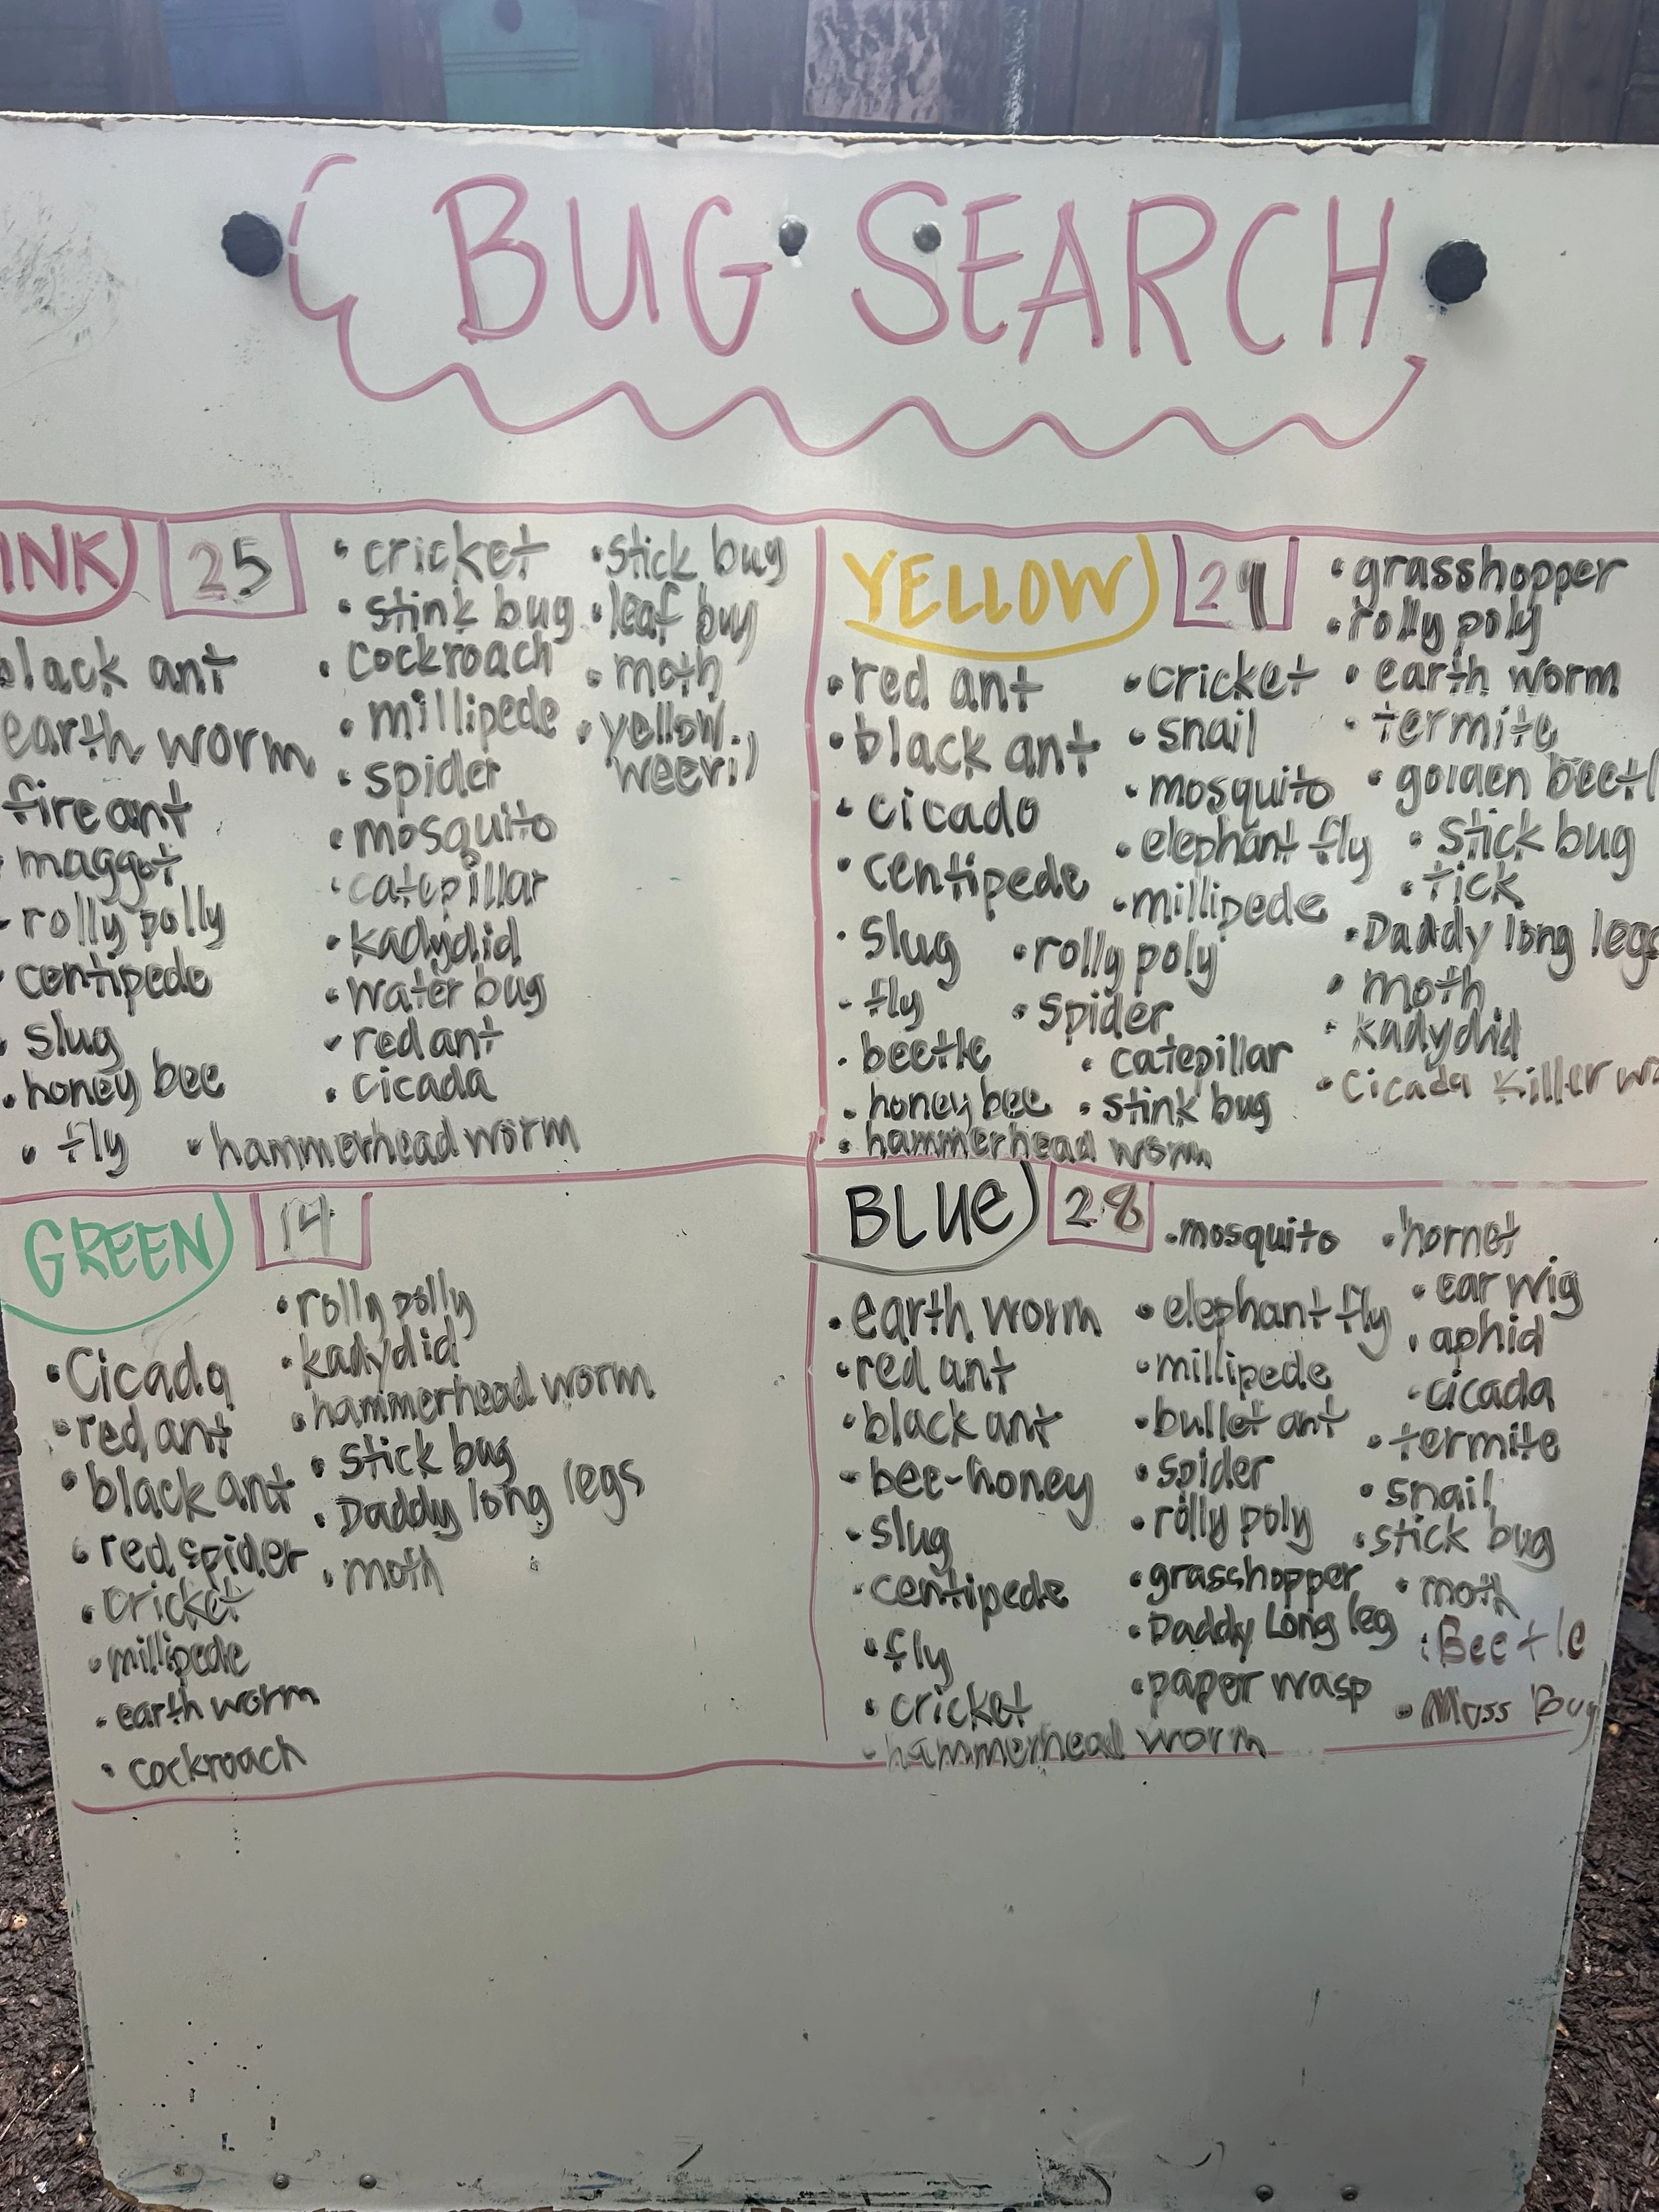 BUG SEARCH
INK 25
black ant
earth worm
fire ant
maggot
• rolly polly
• centipede
• slug
• honey bee
• fly
• cricket
• stink bug
• cockroach
• millipede
• spider
• mosquito
• catepillar
• kadydid
• water bug
• red ant
• cicada
• hammerhead worm
• stick bug
• leaf bug
• moth
• yellow
weevil
YELLOW
• red ant
• black ant
• cicado
• centipede
• slug
• fly
• beetle
• honey bee
• hammerhead worm
• cricket
• snail
• mosquito
• elephant fly
• millipede
• rolly poly
• spider
• catepillar
• stink bug
• grasshopper
• rolly poly
• earth worm
• termite
• golden beetl
• stick bug
• tick
• Daddy long legs
• moth
• kadydid
• Cicada Killer wa
GREEN 14
• Cicada
• red ant
• black ant
• red spider
• cricket
• millipede
• earth worm
• cockroach
• rolly polly
• kadydid
• hammerhead worm
• stick bug
• Daddy long legs
• moth
BLUE 28
• earth worm
• red ant
• black ant
• bee-honey
• slug
• centipede
• fly
• cricket
• hammerhead worm
• mosquito
• elephant fly
• millipede
• bullet ant
• spider
• rolly poly
• grasshopper
• Daddy Long leg
• paper wasp
• hornet
• ear wig
• aphid
• cicada
• termite
• snail
• stick bug
• moth
• Beetle
• Moss Bug